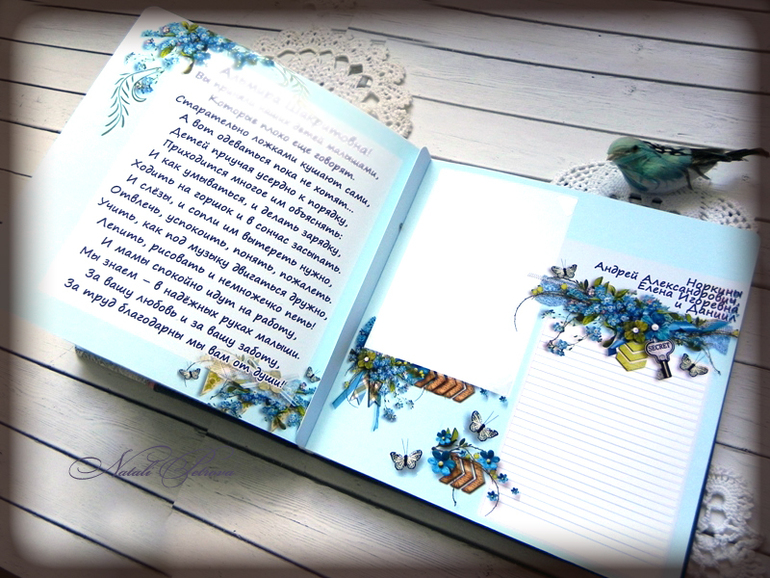 Вы приняли наших детей малышами,
Которые плохо еще говорят.
Старательно ложками кушают сами,
А вот одеваться пока не хотят...
Детей приучая усердно к порядку,
Приходится многое им объяснять.
И как умываться, и делать зарядку,
Ходить на горшок и в сончас засыпать.
И слёзы, и сопли им вытереть нужно,
Отвлечь, успокоить, понять, пожалеть.
Учить, как под музыку двигаться дружно,
Лепить, рисовать и немножечко петь!
И мамы спокойно идут на работу,
Мы знаем – в надёжных руках малыши.
За вашу любовь и за вашу заботу,
За труд благодарны мы вам от души!
Норкины
Андрей Александрович,
Елена Игоревна
и Даниил
SECRET
Natali